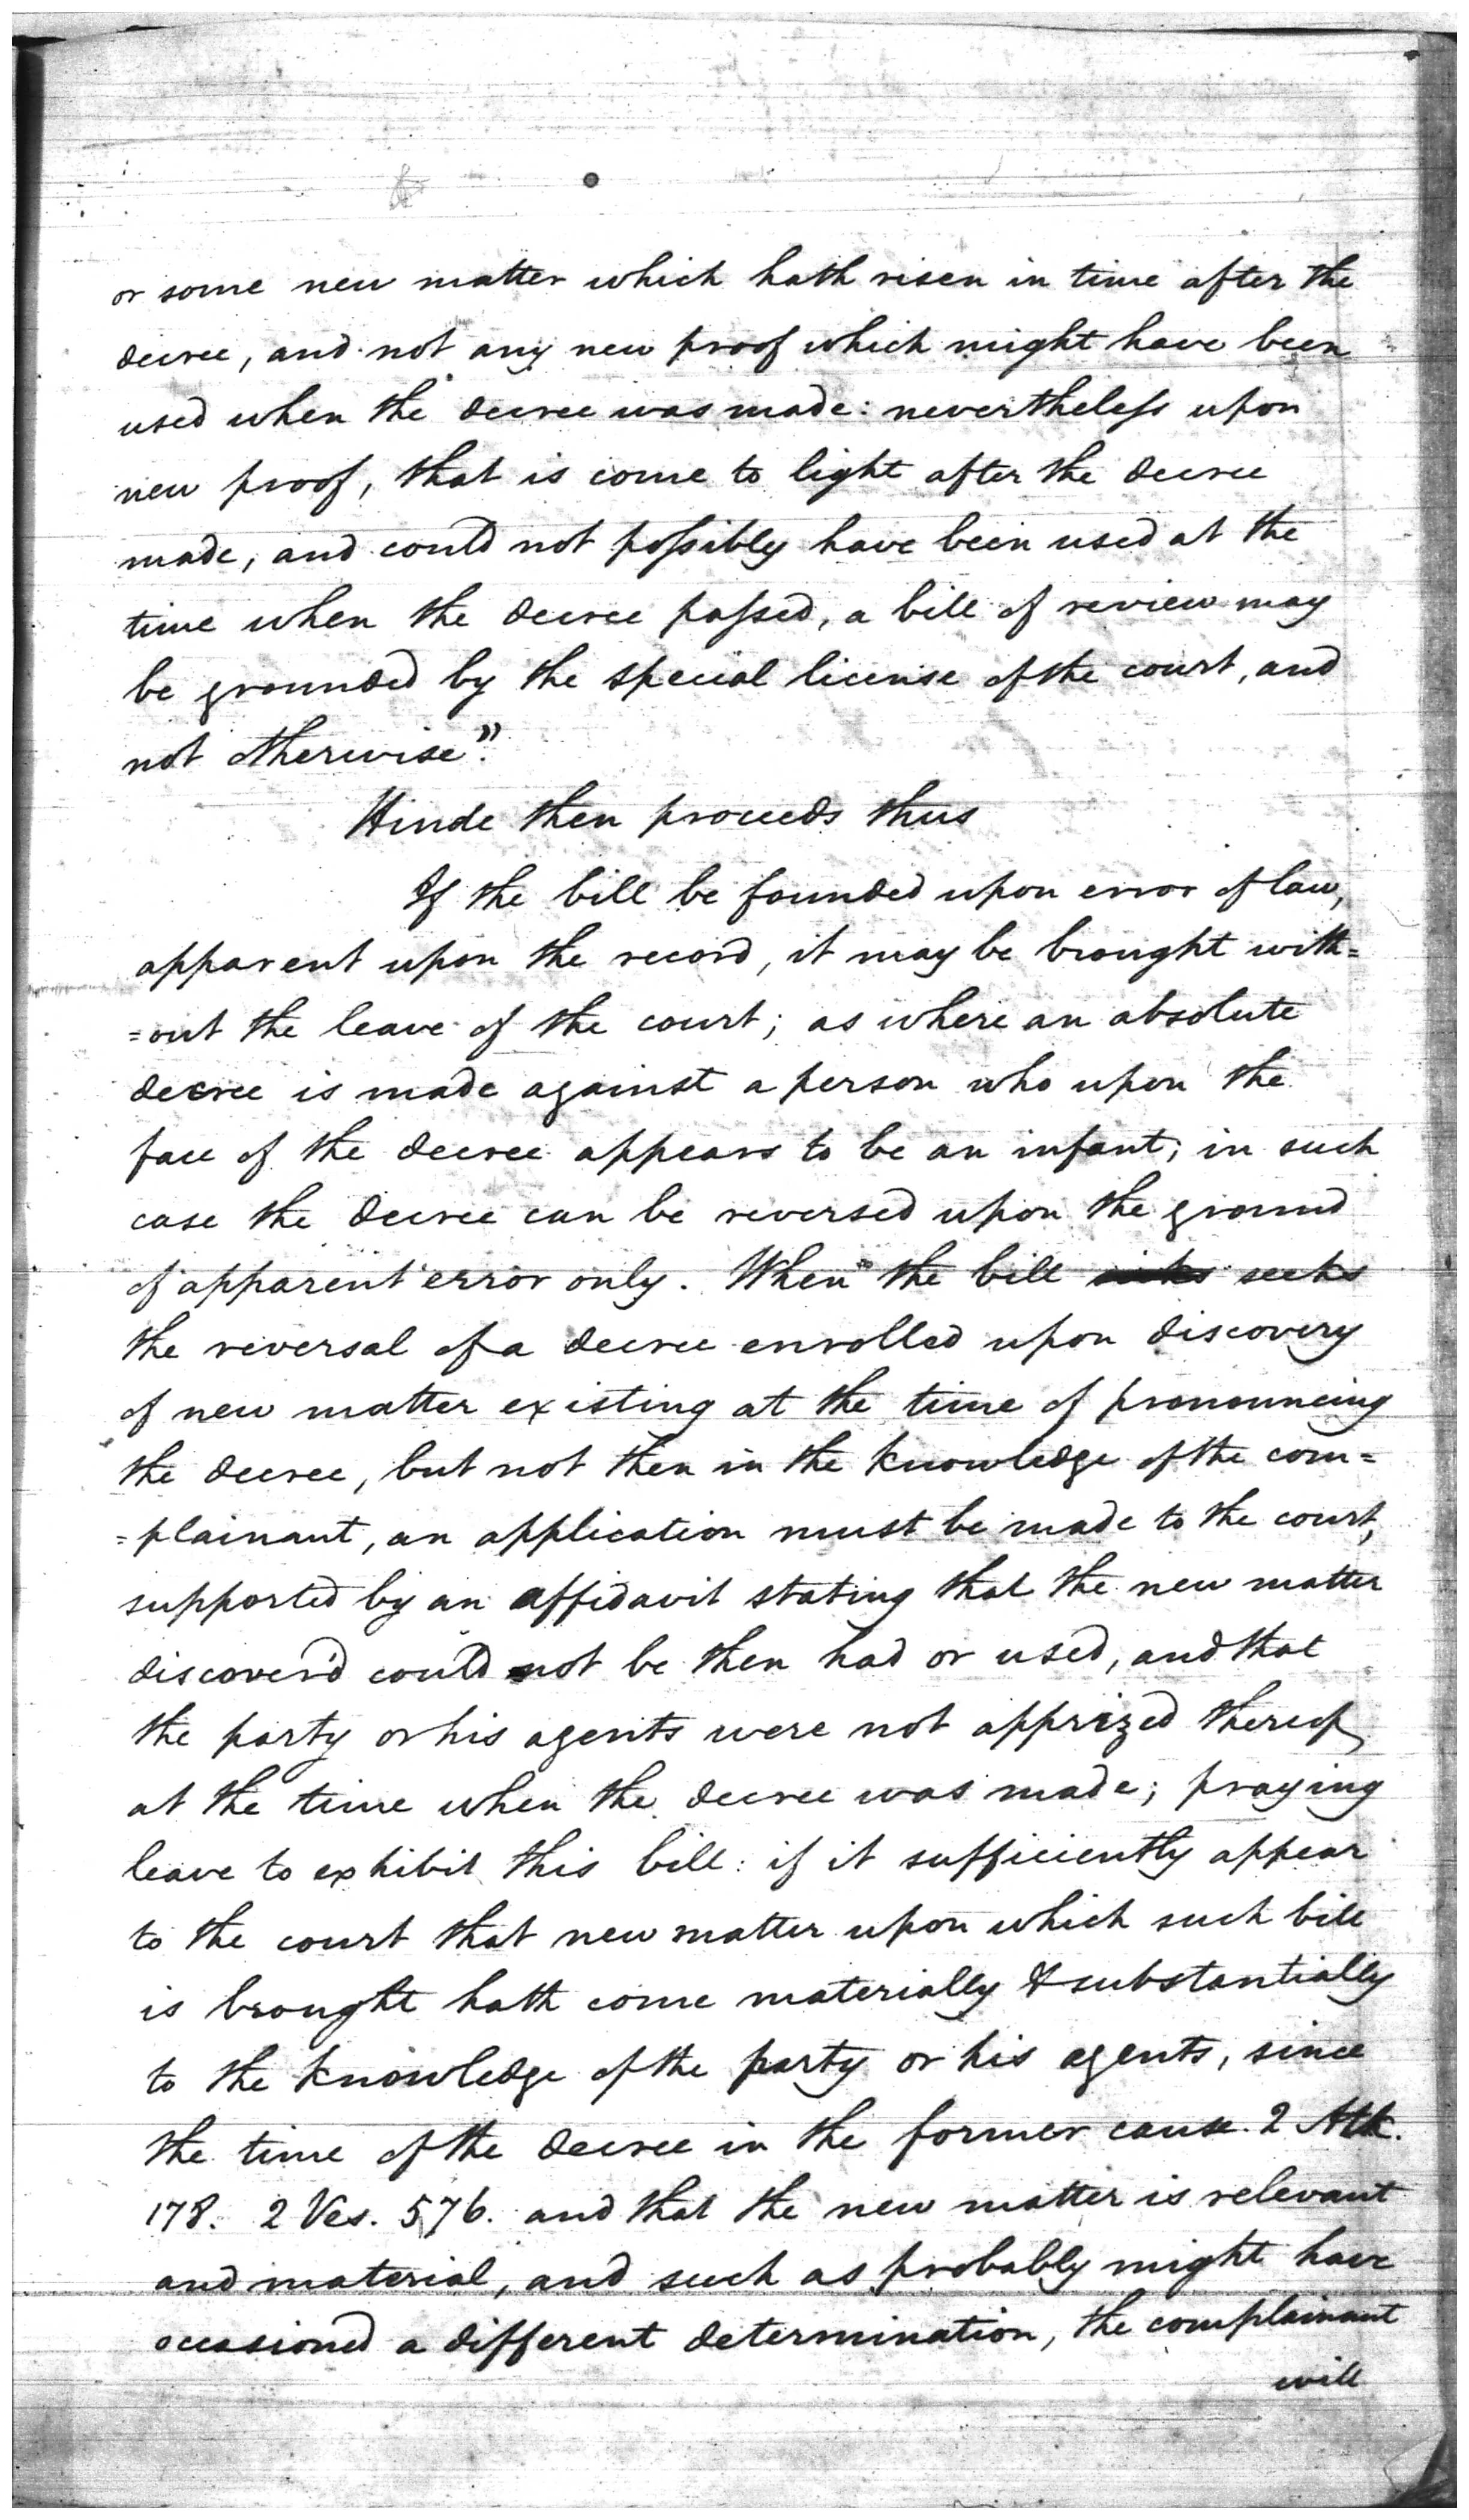 or some new matter which hath risen in time after the
decree, and not any new proof which might have been
used when the decree was made: nevertheleſs upon
new proof, that is come to light after the decree
made, and could not poſsibly have been used at the
time when the decree paſsed, a bill of review may
be grounded by the special license of the court, and
not otherwise".
Hinde then proceeds thus
If the bill be founded upon error of law,
apparent upon the record, it may be brought with=
=out the leave of the court; as where an absolute
decree is made against a person who upon the
face of the decree appears to be an infant; in such
case the decree can be reversed upon the ground
of apparent error only. When the bill seeks
the reversal of a decree enrolled upon discovery
of new matter existing at the time of pronouncing
the decree, but not then in the knowledge of the com=
=plainant, an application must be made to the court,
supported by an affidavit stating that the new matter
discover'd could not be then had or used, and that
the party or his agents were not apprized thereof
at the time when the decree was made; praying
leave to exhibit this bill: if it sufficiently appear
to the court that new matter upon which such bill
is brought hath come materially & substantially
to the knowledge of the party or his agents, since
the time of the decree in the former cause. 2 Atk.
178. 2 Ves. 576. and that the new matter is relevant
and material, and such as probably might have
occasioned a different determination, the complainant
will